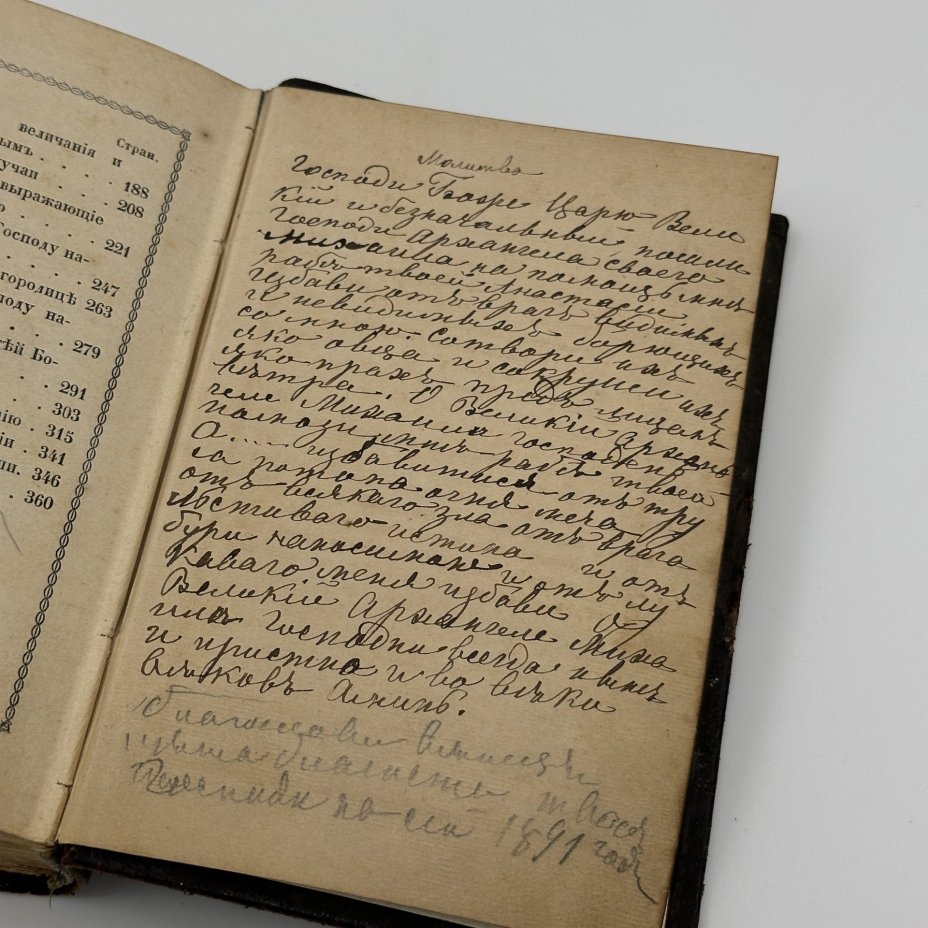 величанія и
Стран.
ымъ . . . . 188
учаи . . . . 208
выражающіе
о . . . . 221
Господу на-
. . . . 247
городицѣ 263
поду на-
. . . 279
тѣй Бо-
. . . 291
. . . 303
нію . 315
ши . 341
ни. 346
. . 360
Молитва
Господи Боже Царю Вели
кій и безначальный пошли
Господи Архангела своего
Михаила на помощь мнѣ
рабѣ твоей Анастасіи
избави отъ врагъ видимыхъ
и невидимыхъ борющихъ
со мною. сотвори ихъ
яко овца и сокруши ихъ
яко прахъ предъ лицемъ
вѣтра. О Великій архан
геле Михаила господень
помози мнѣ рабѣ твоей
А.... избавитися отъ тру
са потопа огня меча
отъ всякаго зла отъ врага
льстиваго и отъ
бури наносимой и отъ лу
каваго меня избави О
Великій Архангеле Миха
ила Господни всегда нынѣ
и присно и во вѣки
вѣковъ Аминь.
благослави вѣнецъ
лѣта благости твоея
Господи 1891 годъ